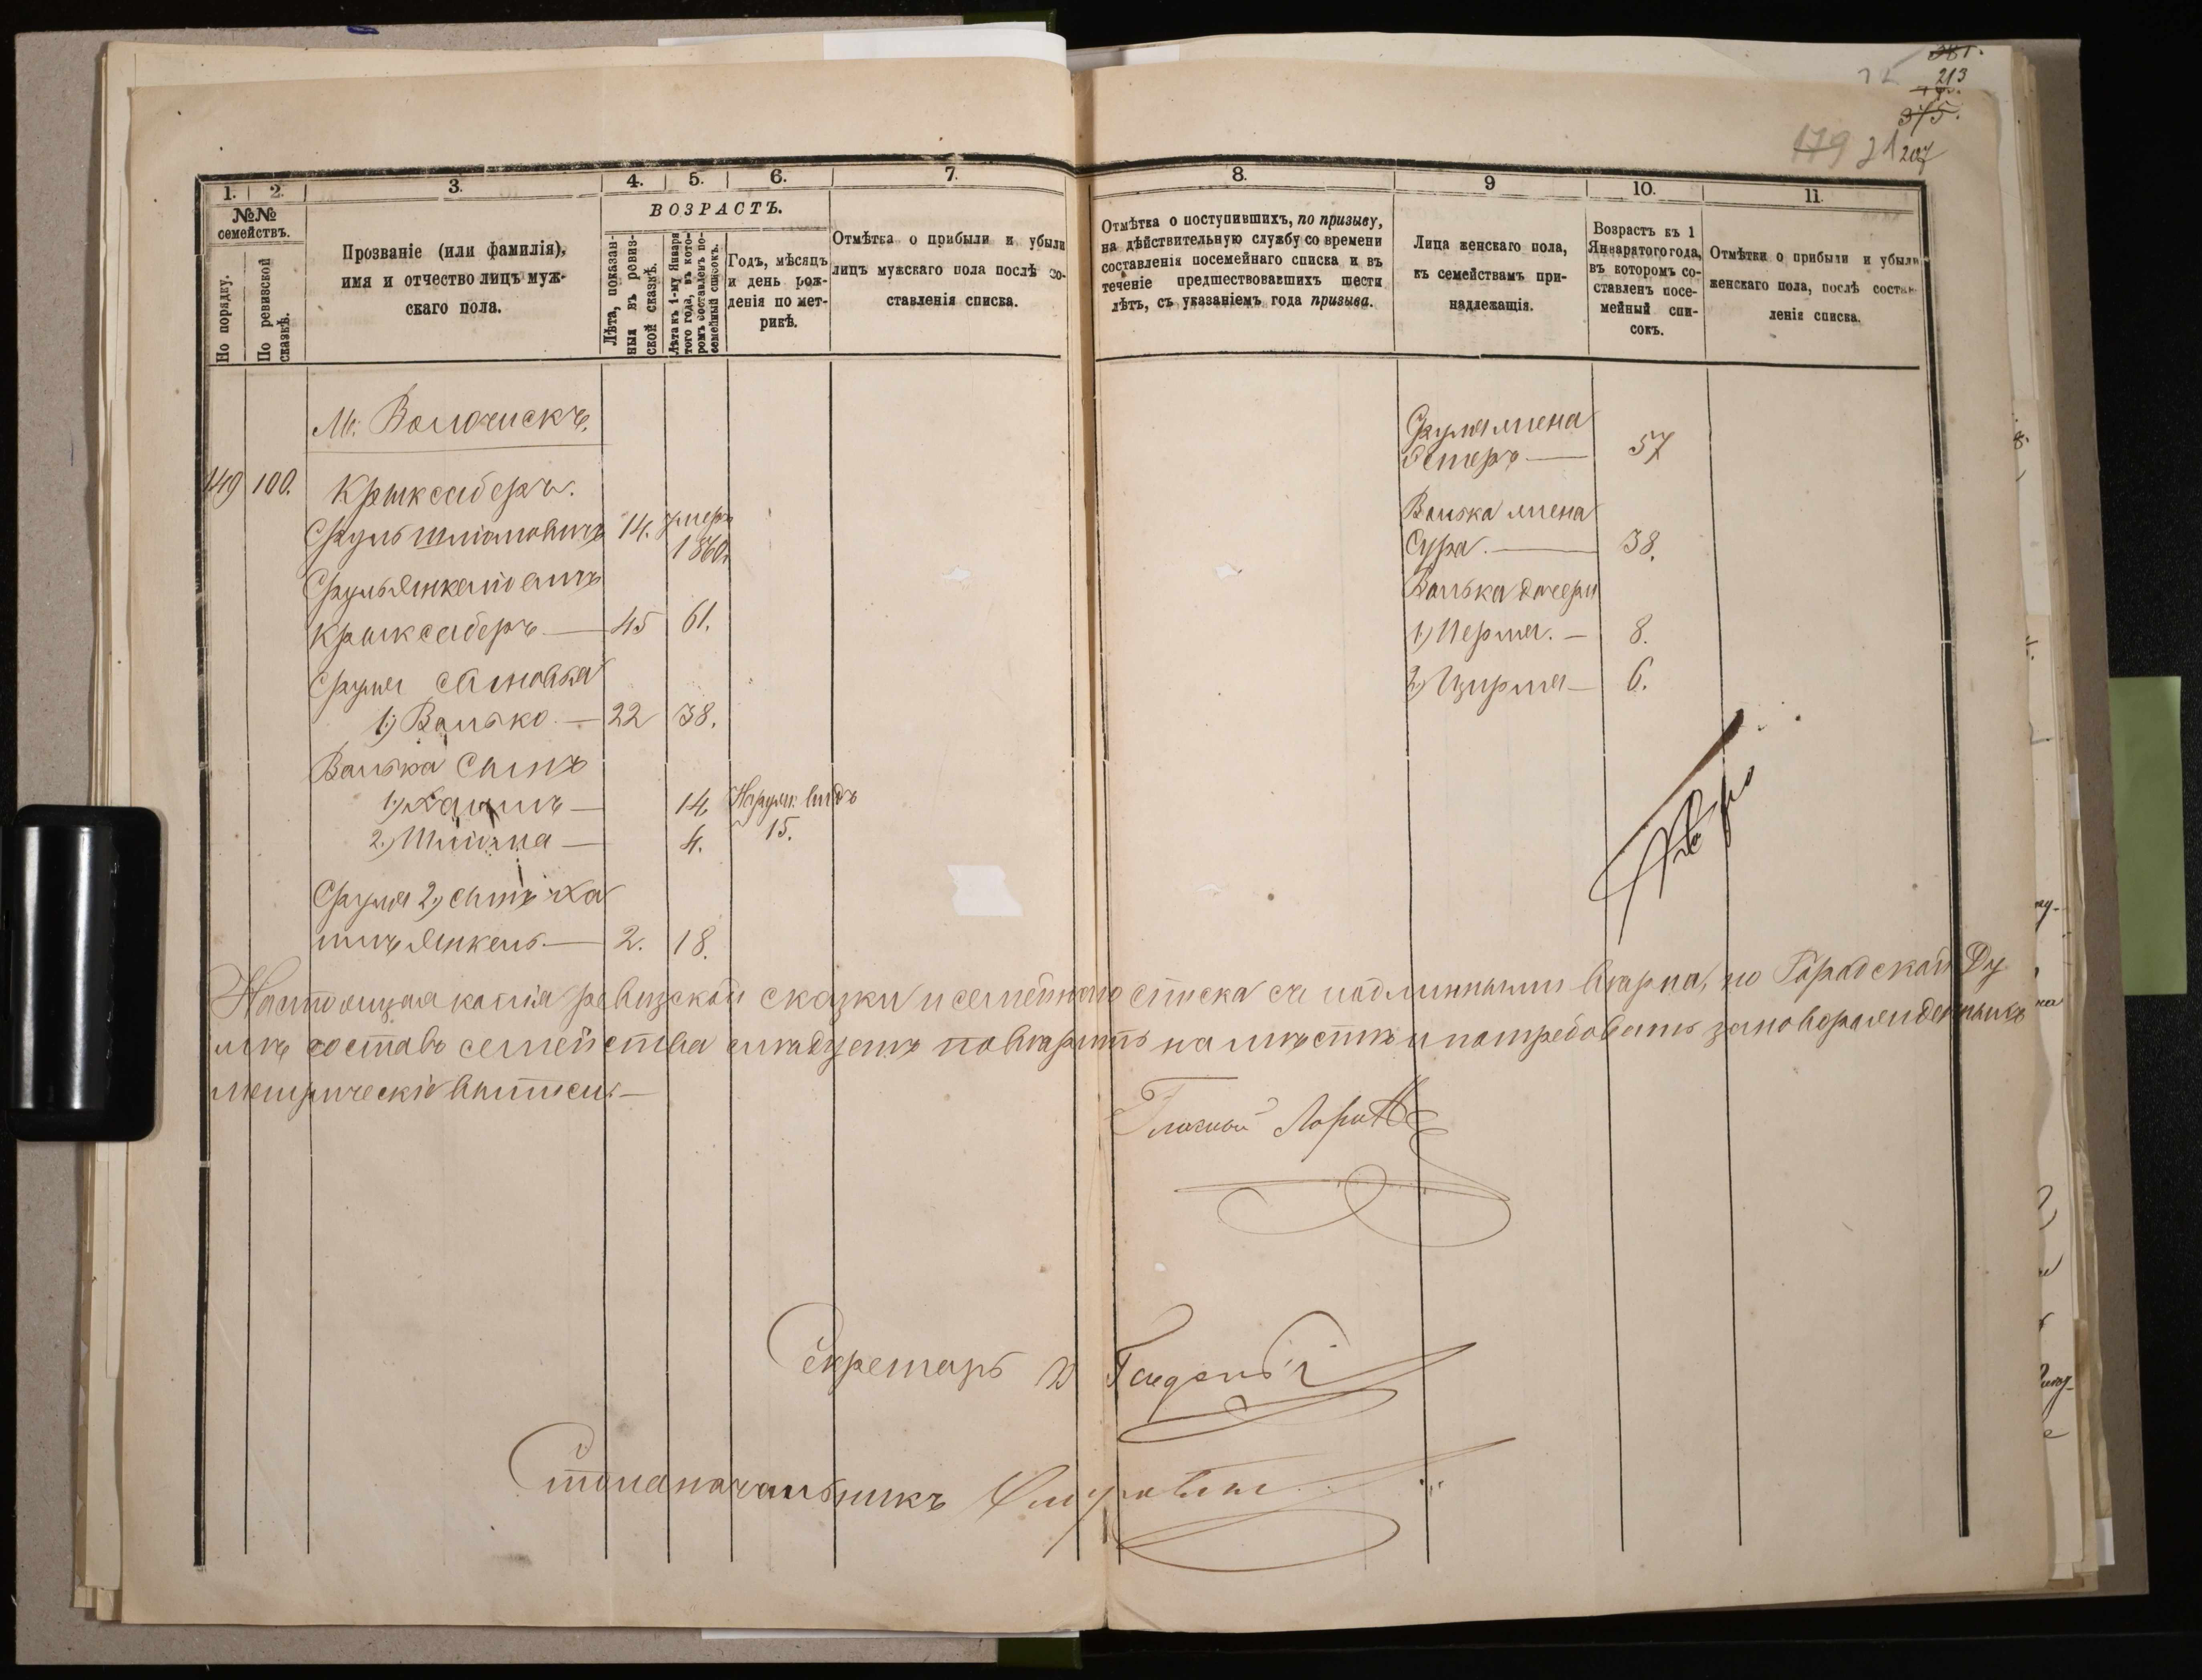 213
375.
179 21 207
1. 2. 3. 4. 5. 6. 7. 8. 9 10. 11.
№№ семействъ.
По порядку.
По ревизской сказкѣ.
Прозваніе (или фамилія),
имя и отчество лицъ муж-
скаго пола.
ВОЗРАСТЪ.
Лѣта, показан-
ныя въ ревиз-
ской сказкѣ.
Лѣта къ 1-му Января
того года, въ кото-
ромъ составленъ по-
семейный списокъ.
Годъ, мѣсяцъ
и день рож-
денія по мет-
рикѣ.
Отмѣтка о прибыли и убыли
лицъ мужскаго пола послѣ со-
ставленія списка.
Отмѣтка о поступившихъ, по призыву,
на дѣйствительную службу со времени
составленія посемейнаго списка и въ
теченіе предшествовавшихъ шести
лѣтъ, съ указаніемъ года призыва.
Лица женскаго пола,
къ семействамъ при-
надлежащія.
Возрастъ къ 1
Января того года,
въ которомъ со-
ставленъ посе-
мейный спи-
сокъ.
Отмѣтки о прибыли и убыли
женскаго пола, послѣ состав-
ленія списка.
М. Волочискъ.
449 100. Крыксаберъ.
Сруль Шліомовичъ 14. умеръ
1860.
Сруль Янкелювичъ
Крыксаберъ — 45 61.
Сруля сыновья
1) Волько — 22 38.
Волька сынъ
1) Хаимъ — 14. Наружн. видъ
15.
2) Шліома — 4.
Сруля 2) сынъ Ха
имъ Янкель — 2. 18.
Сруля жена
Эстеръ — 57
Волька жена
Сура. — 38.
Волька дочери
1) Перля. — 8.
2) Цирля — 6.
Настоящая копія ревизской сказки и семейнаго списка съ подлинными вѣрна, по Городской Ду
мѣ составъ семейства слѣдуетъ повѣрить на мѣстѣ и потребовать за новорожденныхъ
метрическіе выписи. —
Гласный
Секретарь
Столоначальникъ